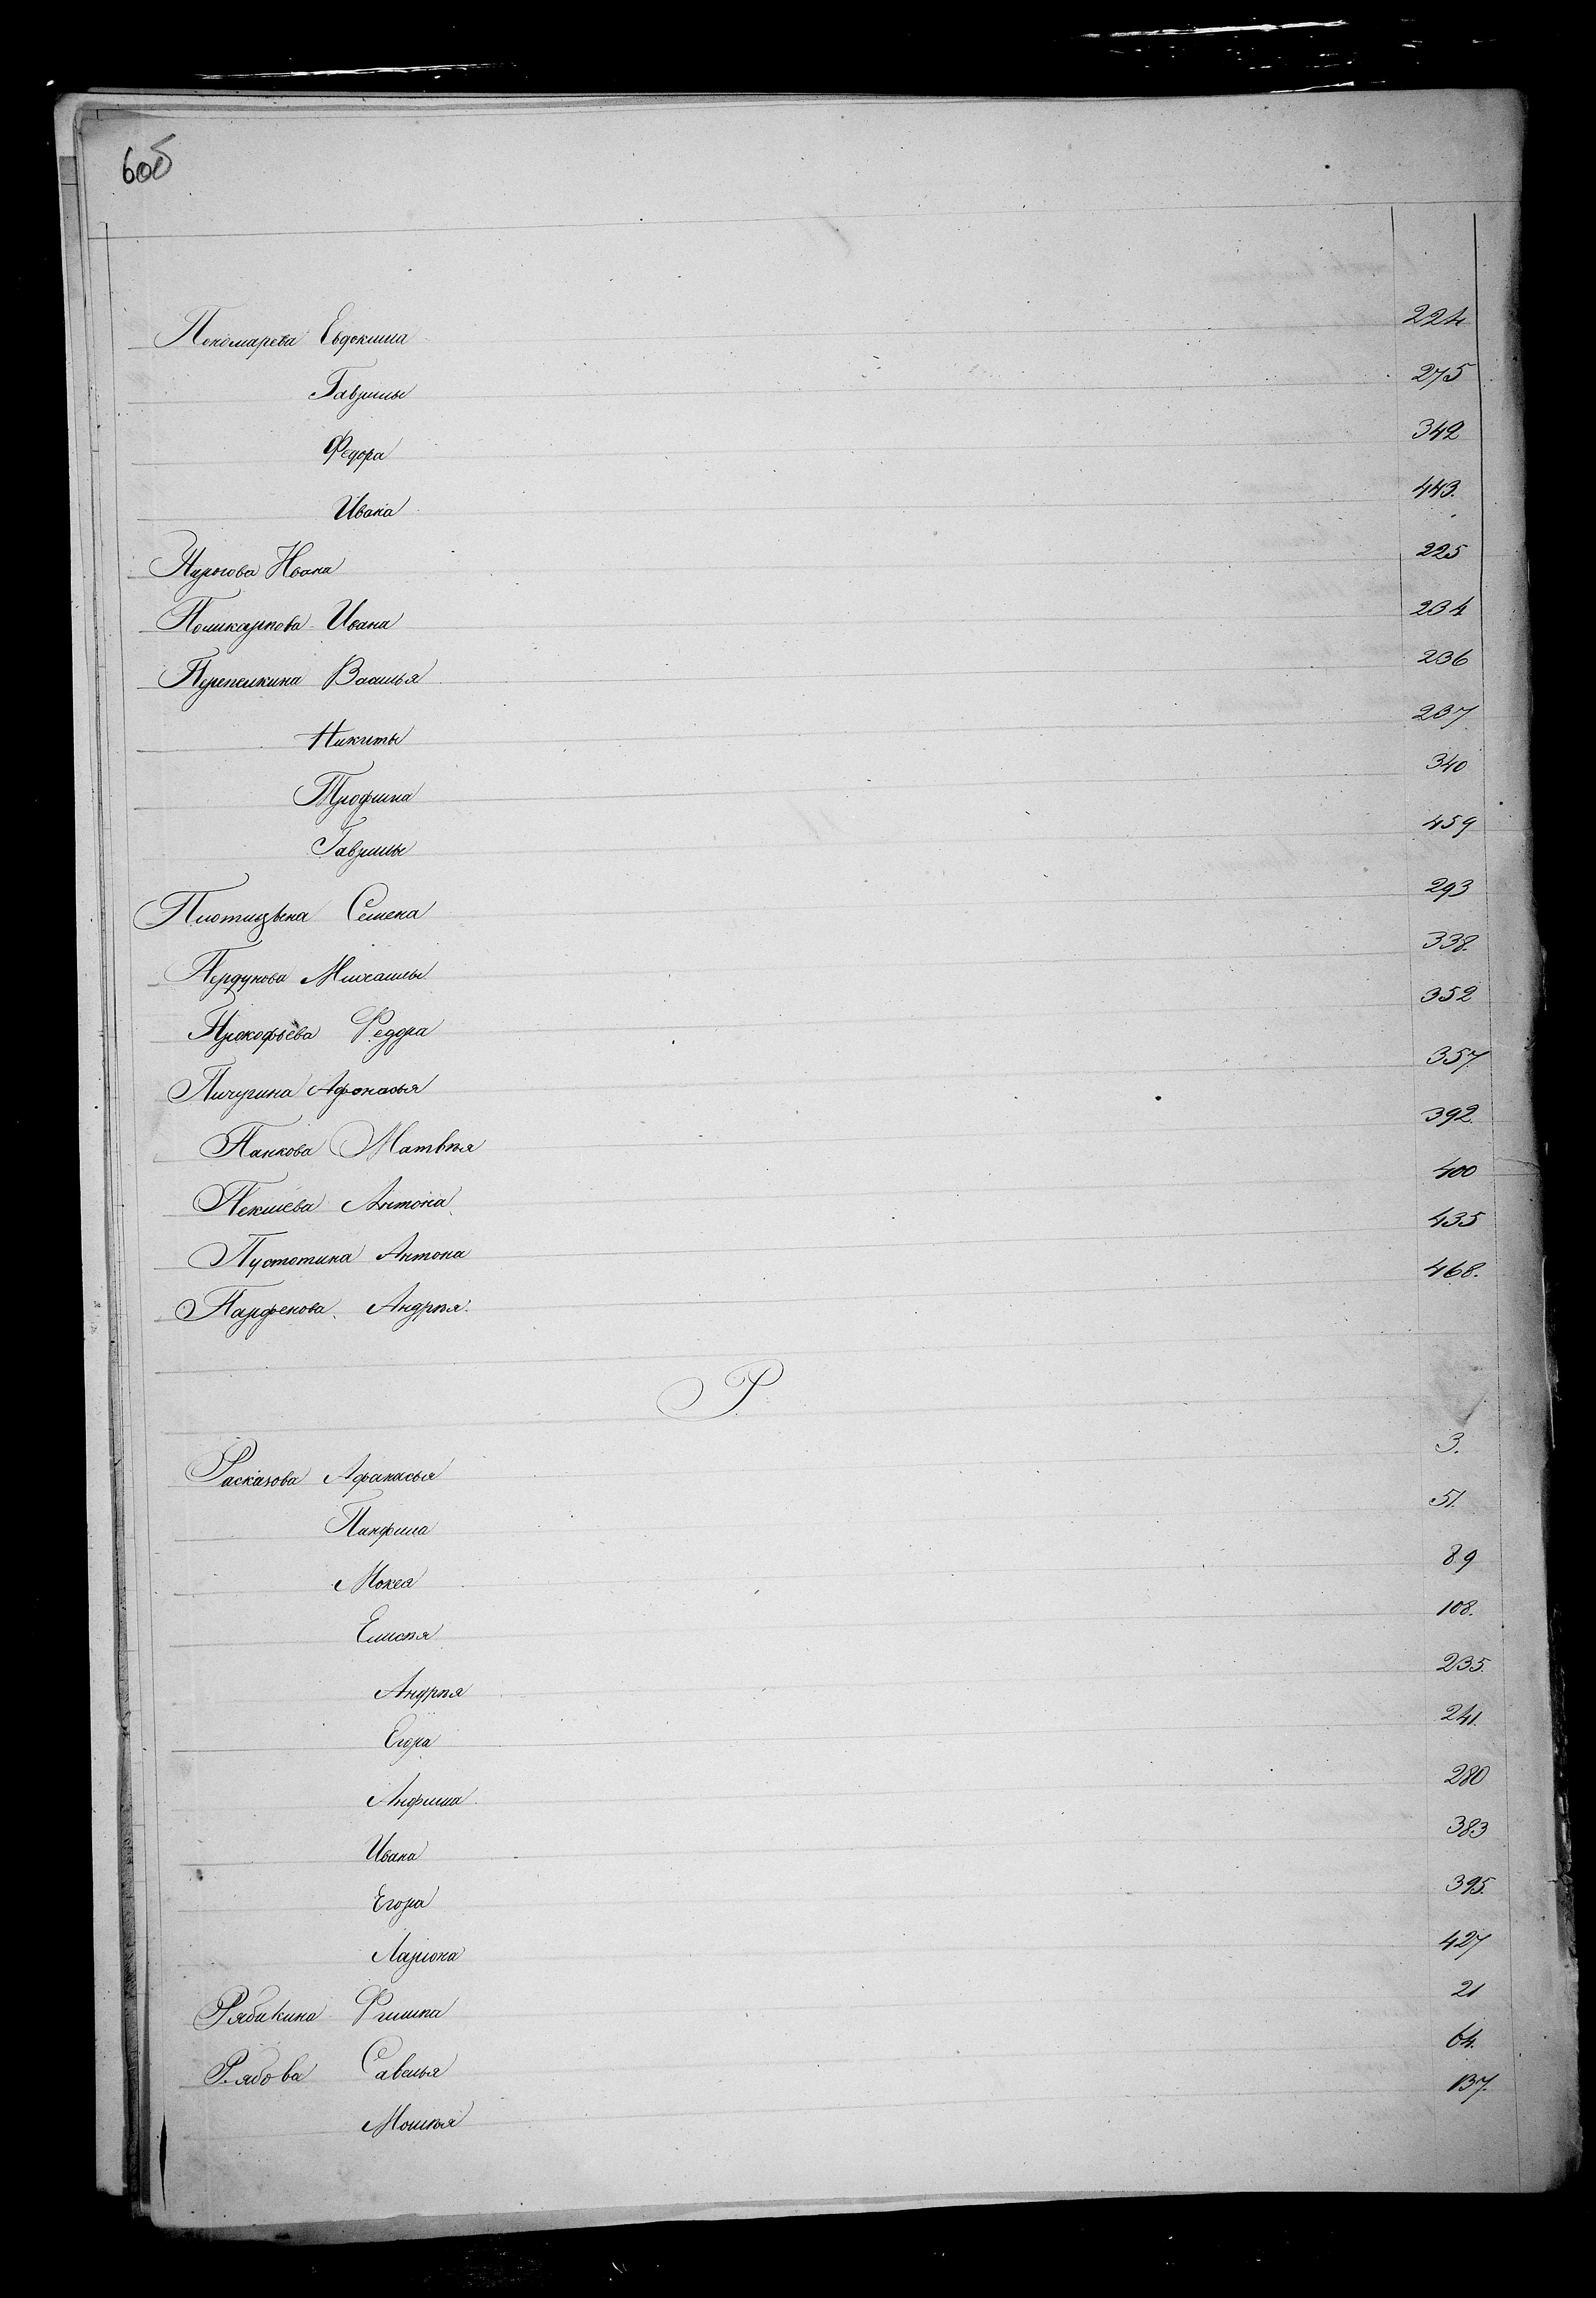 6об
Пономарева Евдокима 224
Гаврилы 275
Федора 342
Ивана 443.
Пирогова Ивана 225
Поликарпова Ивана 234
Перепелкина Василья 236
Никиты 237
Трофима 340
Гаврилы 459
Плотицына Семена 293
Пердунова Михаилы 338.
Прокофьева Федора 352
Пичугина Афонасья 357
Панкова Матвѣя 392.
Пекшева Антона 400
Пустотина Антона 435
Парфенова Андрѣя. 468.
Р
Расказова Афанасья 3.
Панфила 51.
Мокея 89
Елисѣя 108.
Андрѣя 235.
Егора 241.
Анфима 280
Ивана 383
Егора 395.
Лариона 427
Рябикина Филипа 21
Рябова Савелья 64.
Моисѣя 137.